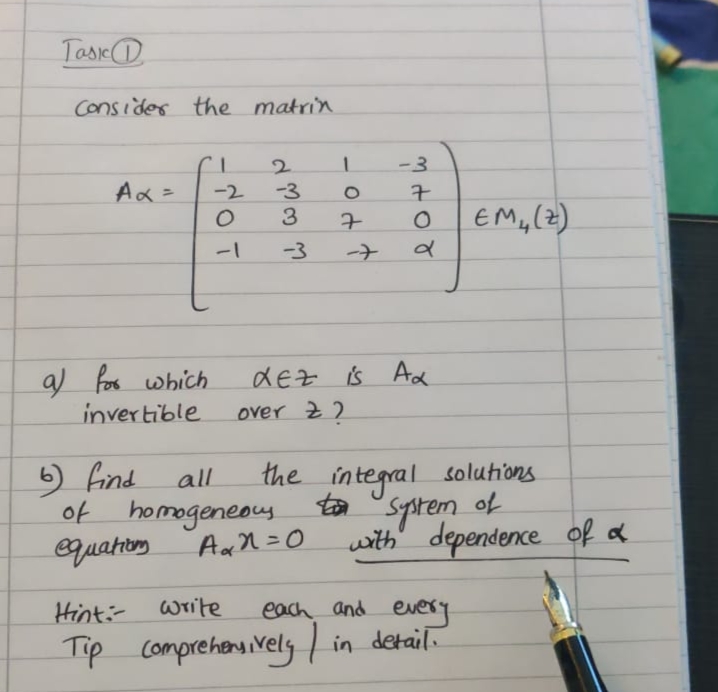 Task ①
Consider the matrix
1 2 1 -3
Aα = -2 -3 0 7
0 3 7 0 ∈ M₄(Z)
-1 -3 -7 α
a) for which α∈Z is Aα
invertible over Z?
b) find all the integral solutions
of homogeneous system of
equations Aαx=0 with dependence of α
Hint:- write each and every
Tip comprehensively / in detail.